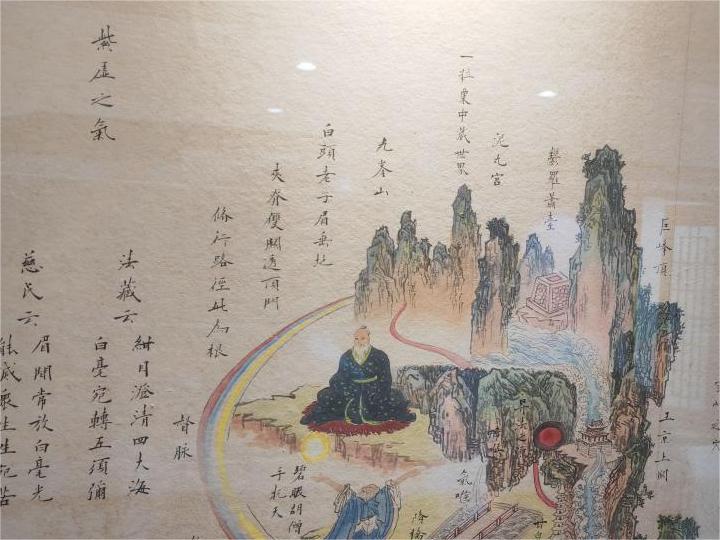 巨峰頂
玉京上關
鬱羅蕭臺
泥丸宮
一粒粟中藏世界
九峯山
白頭老子眉垂地
夾脊雙關透頂門
修行路徑此為根
碧眼胡僧
手托天
督脈
紫虛之氣
法藏云
紺目澄清四大海
白毫宛轉五須彌
慈氏云
眉間常放白毫光
能滅衆生生死苦